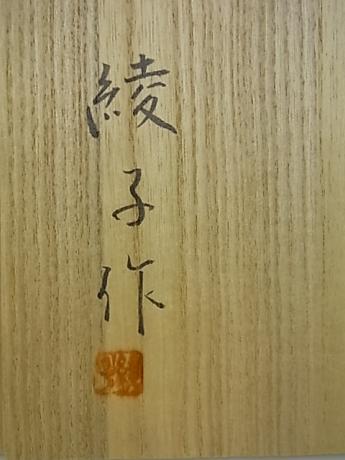 綾子作